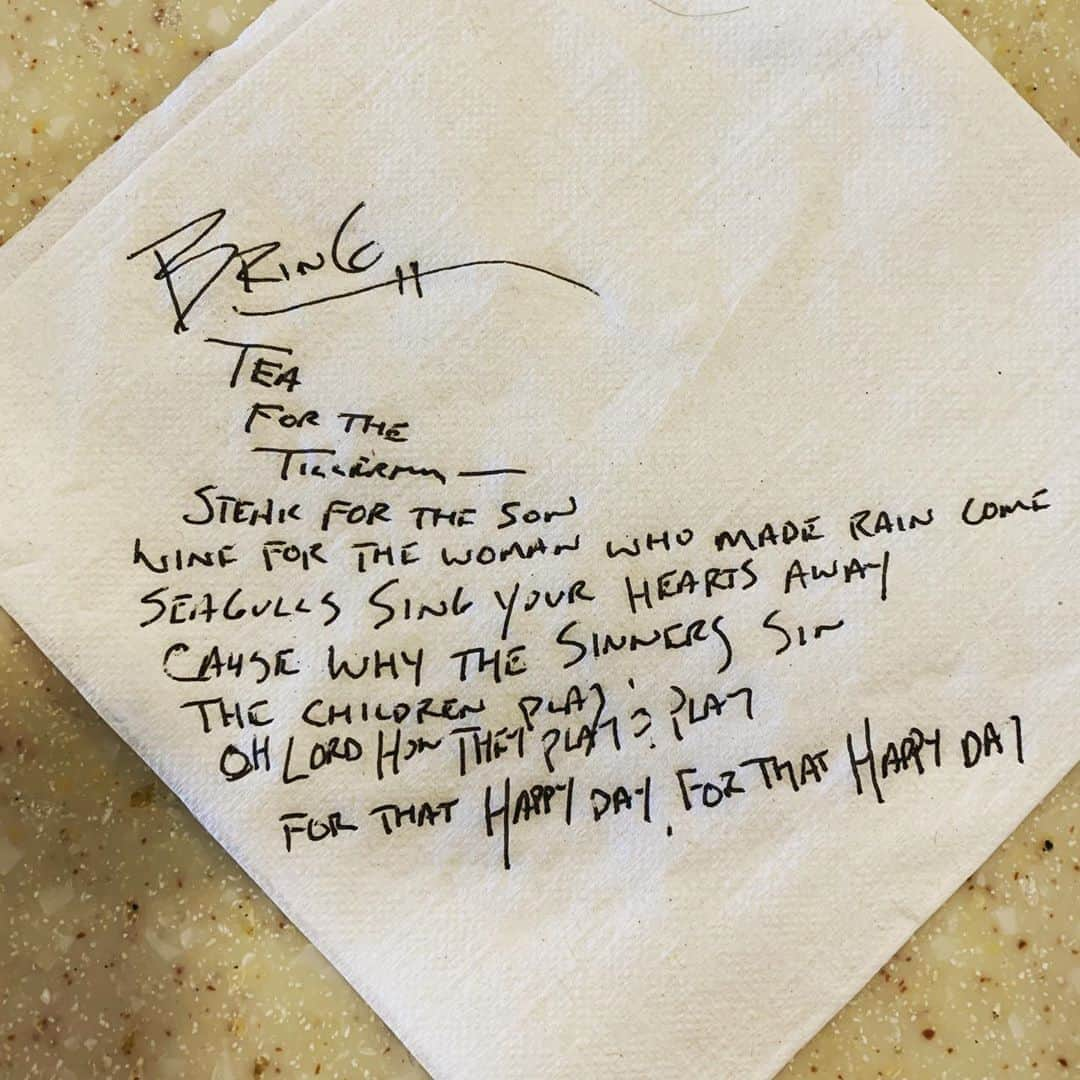 BRING
TEA
FOR THE
TILLERMAN —
STEAK FOR THE SON
WINE FOR THE WOMAN WHO MADE RAIN COME
SEAGULLS SING YOUR HEARTS AWAY
CAUSE WHY THE SINNERS SIN
THE CHILDREN PLAY;
OH LORD HOW THEY PLAY & PLAY
FOR THAT HAPPY DAY, FOR THAT HAPPY DAY